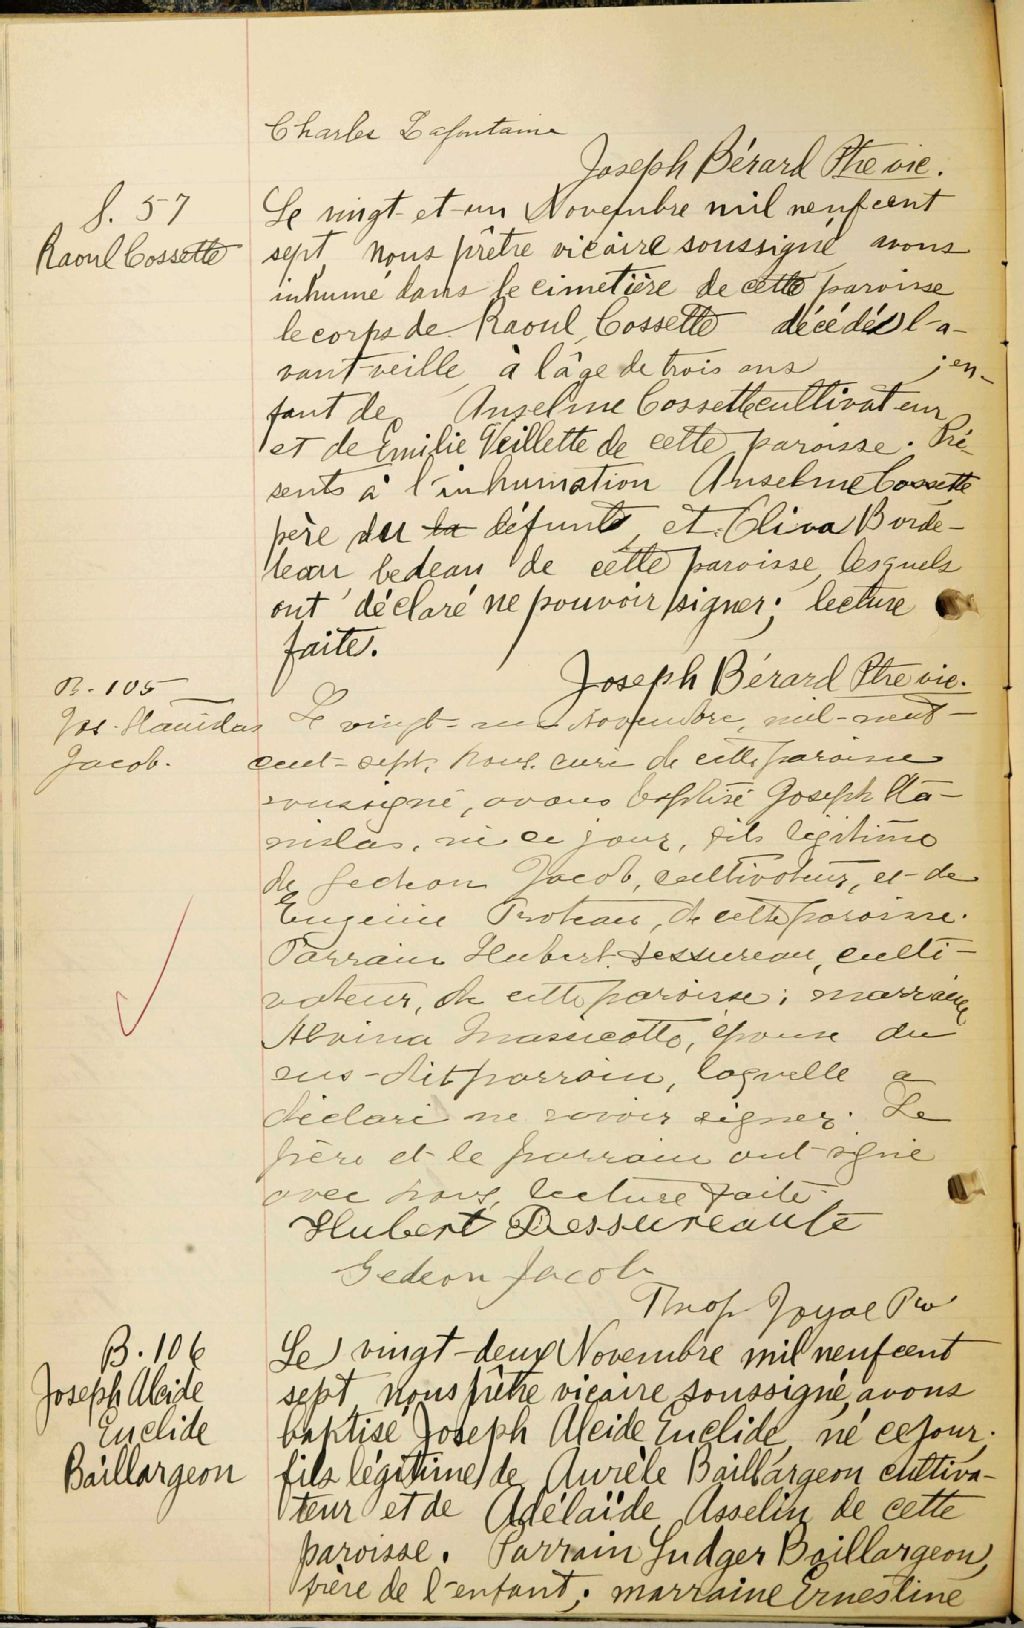 Charles Lafontaine
Joseph Bérard Ptre vic.
S. 57
Raoul Cossette
Le vingt-et-un Novembre mil neuf cent
sept, nous prêtre vicaire soussigné avons
inhumé dans le cimetière de cette paroisse
le corps de Raoul Cossette décédé l'a-
vant veille à l'âge de trois ans ; en-
fant de Anselme Cossette cultivateur
et de Emilie Veillette de cette paroisse. Pré-
sents à l'inhumation Anselme Cossette
père du la défunt, et Oliva Borde-
leau bedeau de cette paroisse, lesquels
ont déclaré ne pouvoir signer; lecture
faite.
Joseph Bérard Ptre vic.
B. 105
Jos. Stanislas
Jacob.
Le vingt-un Novembre, mil-neuf-
cent-sept, nous, curé de cette paroisse
soussigné, avons baptisé Joseph Sta-
nislas, né ce jour, fils légitime
de Gedeon Jacob, cultivateur, et de
Eugénie Proteau, de cette paroisse.
Parrain Hubert Dessureau, culti-
vateur, de cette paroisse; marraine
Alvina Massicotte, épouse du
sus-dit parrain, laquelle a
déclaré ne savoir signer. Le
père et le parrain ont signé
avec nous, lecture faite.
Hubert Dessureault
Gedeon Jacob
Joyal
B. 106
Joseph Alcide
Euclide
Baillargeon
Le vingt-deux Novembre mil neuf cent
sept, nous prêtre vicaire soussigné, avons
baptisé Joseph Alcide Euclide, né ce jour,
fils légitime de Aurèle Baillargeon cultiva-
teur et de Adélaïde Asselin de cette
paroisse. Parrain Ludger Baillargeon,
frère de l'enfant; marraine Ernestine